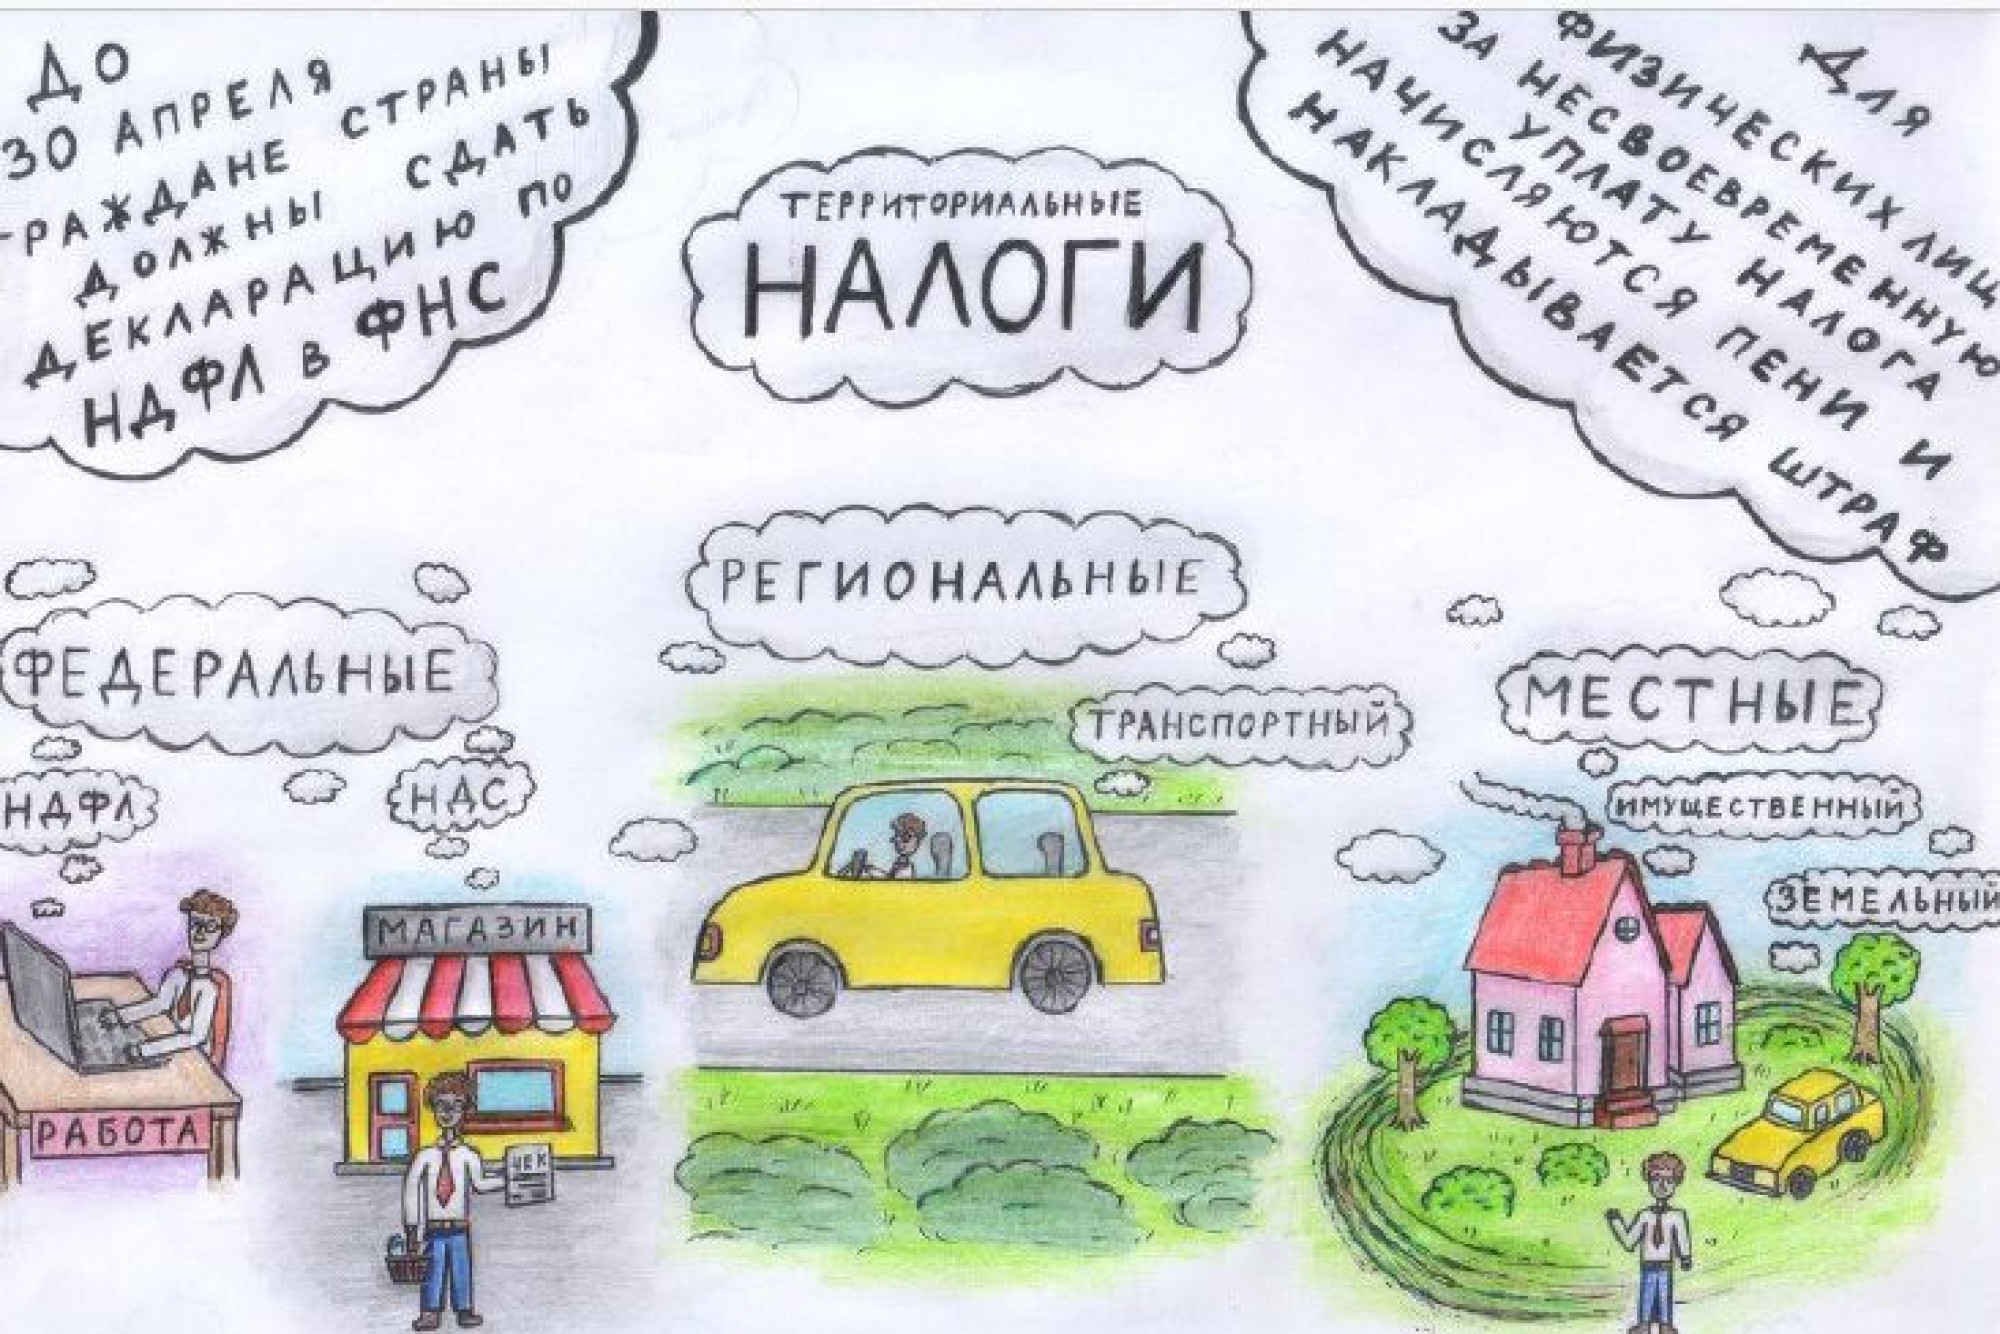 ДО
30 АПРЕЛЯ
РАЖДАНЕ СТРАНЫ
ДОЛЖНЫ СДАТЬ
ДЕКЛАРАЦИЮ ПО
НДФЛ В ФНС
ТЕРРИТОРИАЛЬНЫЕ
НАЛОГИ
ДЛЯ
ФИЗИЧЕСКИХ ЛИЦ
ЗА НЕСВОЕВРЕМЕННУЮ
УПЛАТУ НАЛОГА
НАЧИСЛЯЮТСЯ ПЕНИ И
НАКЛАДЫВАЕТСЯ ШТРАФ
ФЕДЕРАЛЬНЫЕ
НДФЛ
НДС
РАБОТА
МАГАЗИН
ЧЕК
РЕГИОНАЛЬНЫЕ
ТРАНСПОРТНЫЙ
МЕСТНЫЕ
ИМУЩЕСТВЕННЫЙ
ЗЕМЕЛЬНЫЙ